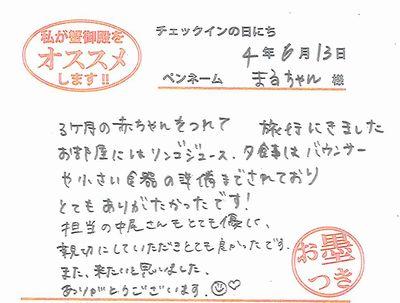 私が蟹御殿を
オススメ
します!!
チェックインの日にち
4年6月13日
ペンネーム まるちゃん 様
3ケ月の赤ちゃんをつれて 旅行にきました
お部屋にはリンゴジュース、夕食事はバウンサー
や小さい食器の準備までされており
とてもありがたかったです!
担当の中尾さんもとても優しく、
親切にしていただきとても良かったです。
また、来たいと思いました。
ありがとうございます。☺♡
お墨
つき